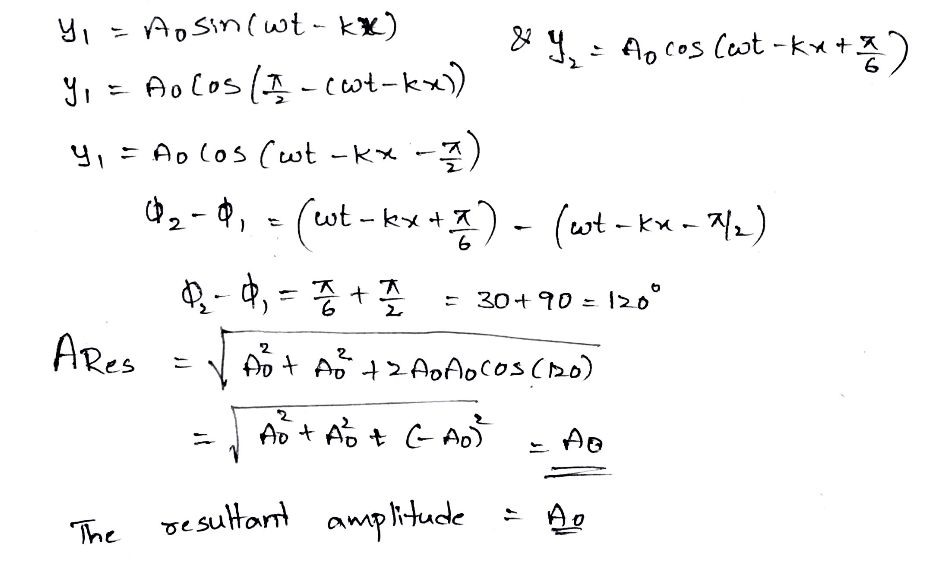 y₁ = A₀ sin(ωt - kx) & y₂ = A₀ cos (ωt - kx + π/6)
y₁ = A₀ cos (π/2 - (ωt - kx))
y₁ = A₀ cos (ωt - kx - π/2)
Φ₂ - Φ₁ = (ωt - kx + π/6) - (ωt - kx - π/2)
Φ₂ - Φ₁ = π/6 + π/2 = 30 + 90 = 120°
ARes = √(A₀² + A₀² + 2A₀A₀cos(120))
= √(A₀² + A₀² + (-A₀)²) = A₀
The resultant amplitude = A₀